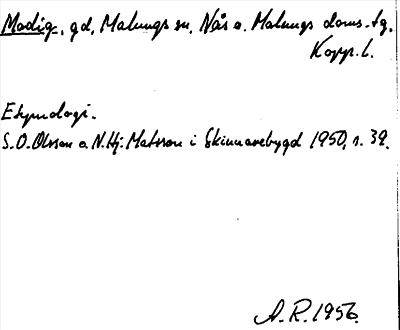 Modig, gd, Malungs sn, Nås o. Malungs doms. tg.
Kopp. l.
Etymologi.
S.O. Olsson o. N. Hj. Matsson i Skinnarebygd 1950, s. 39.
A. R. 1956.